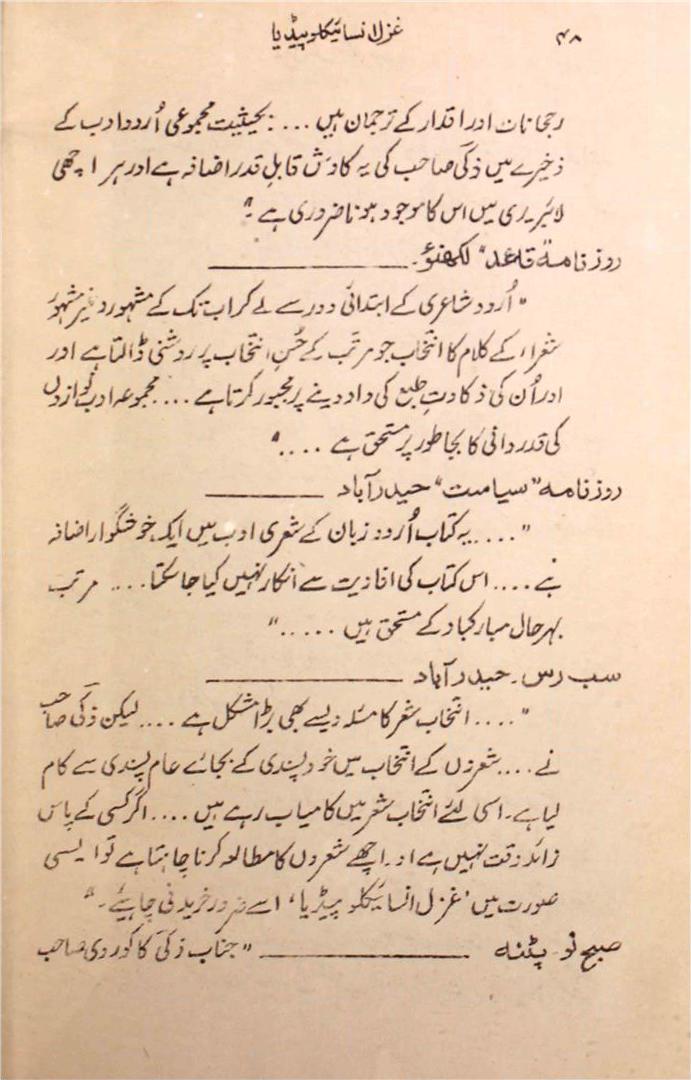 ۴۸
غزل انسائیکلوپیڈیا
رجحانات اور اقدار کے ترجمان ہیں .... بحیثیت مجموعی اُردو ادب کے
ذخیرے میں ذکیؔ صاحب کی یہ کاوش قابلِ قدر اضافہ ہے اور ہر اچھی
لائبریری میں اس کا موجود ہونا ضروری ہے۔"
روزنامہ "قائد" لکھنؤ۔
"اُردو شاعری کے ابتدائی دور سے لے کر اب تک کے مشہور و غیر مشہور
شعراء کے کلام کا انتخاب جو مرتب کے حُسنِ انتخاب پر روشنی ڈالتا ہے اور
اور اُن کی ذکاوتِ طبع کی داد دینے پر مجبور کرتا ہے .... مجموعہ ادب نوازوں
کی قدردانی کا بجا طور پر مستحق ہے ...."
روزنامہ "سیاست" حیدرآباد
".... یہ کتاب اُردو زبان کے شعری ادب میں ایک خوشگوار اضافہ
ہے .... اس کتاب کی افادیت سے انکار نہیں کیا جا سکتا .... مرتب
بہرحال مبارکباد کے مستحق ہیں ....."
سب رس۔ حیدرآباد
".... انتخاب شعر کا مسئلہ ویسے بھی بڑا مشکل ہے .... لیکن ذکیؔ صاحب
نے .... شعروں کے انتخاب میں خود پسندی کے بجائے عام پسندی سے کام
لیا ہے۔ اسی لئے انتخاب شعر میں کامیاب رہے ہیں .... اگر کسی کے پاس
زائد وقت نہیں ہے اور اچھے شعروں کا مطالعہ کرنا چاہتا ہے تو ایسی
صورت میں 'غزل انسائیکلوپیڈیا' اسے ضرور خریدنی چاہیئے۔"
صبح نو۔ پٹنہ "جناب ذکیؔ کاکوروی صاحب